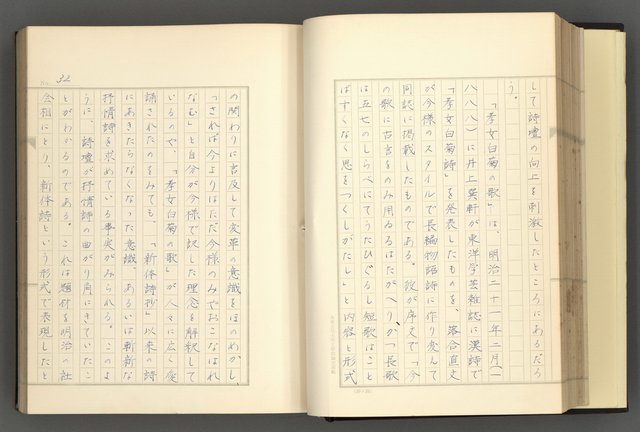 して詩壇の向上を刺激したところにあるだろ
う。
「孝女白菊の歌」は、明治二十一年二月(一
八八八)に井上巽軒が東洋学芸雑誌に漢詩で
「孝女白菊詩」を発表したものを、落合直文
が今様のスタイルで長編物語詩に作り変えて
同誌に掲載したものである。彼が序文で「今
の歌に古言をのみ用ゐるはたがへり
は五七のしらべにてうたひぐるし短歌はこと
ばすくなく思をつくしがたし」と内容と形式
32
の関わりに言及して変革の意識をほのめかし、
「されば今よりはただ今様のみぞおこなはれ
なむ」と自分が今様で訳した理念を解釈して
いるのや、「孝女白菊の歌」が人々に広く愛
誦されたのをみても、「新体詩抄」以来の詩
にあきたらなくなった意識、あるいは斬新な
抒情詩を求めている事実がみられる。このよ
うに、詩壇が抒情詩の曲がり角にきていたこ
とがわかるのである。これは題材を明治の社
会相にとり、新体詩という形式で表現したと